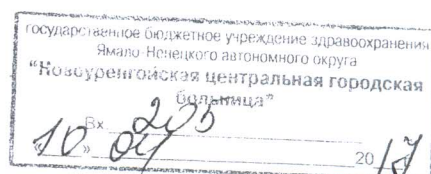 государственное бюджетное учреждение здравоохранения
Ямало-Ненецкого автономного округа
"Новоуренгойская центральная городская
больница"
Вх. 205
"10" 04 2017